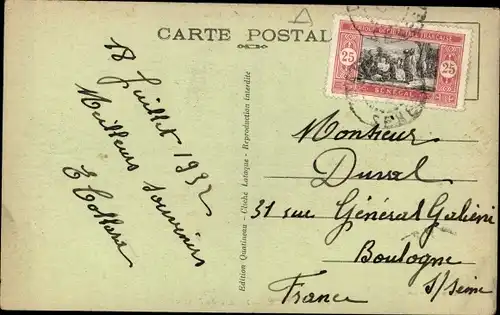 CARTE POSTALE
AFRIQUE OCCIDENTALE FRANÇAISE
25 25
SÉNÉGAL
18 Juillet 1932
Meilleurs souvenirs
Edition Quatineau - Cliché Lataque - Reproduction interdite
Monsieur
Duval
31 rue Général Galieni
Boulogne
s/seine
France